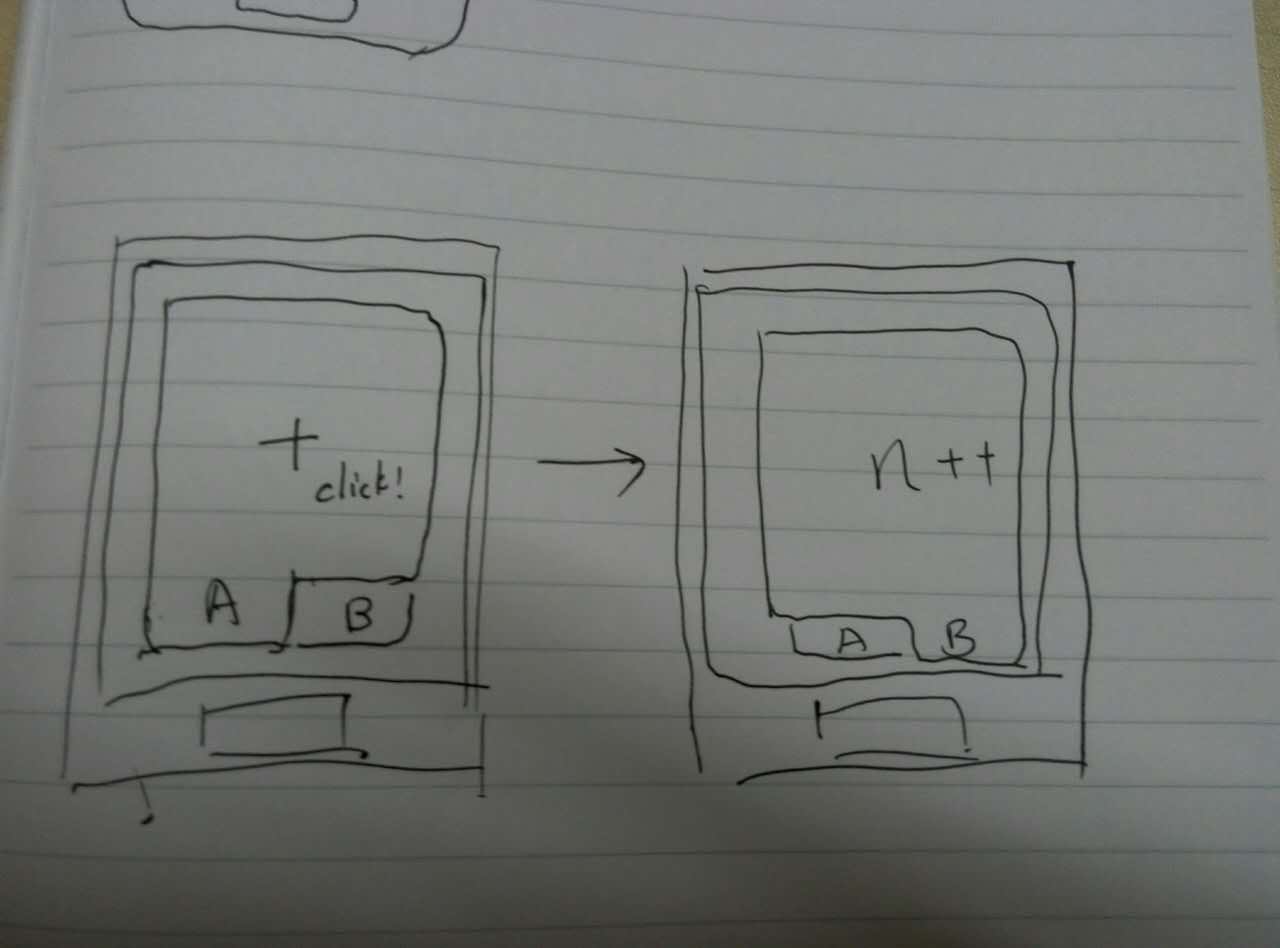 +
click!
A B
n++
A B